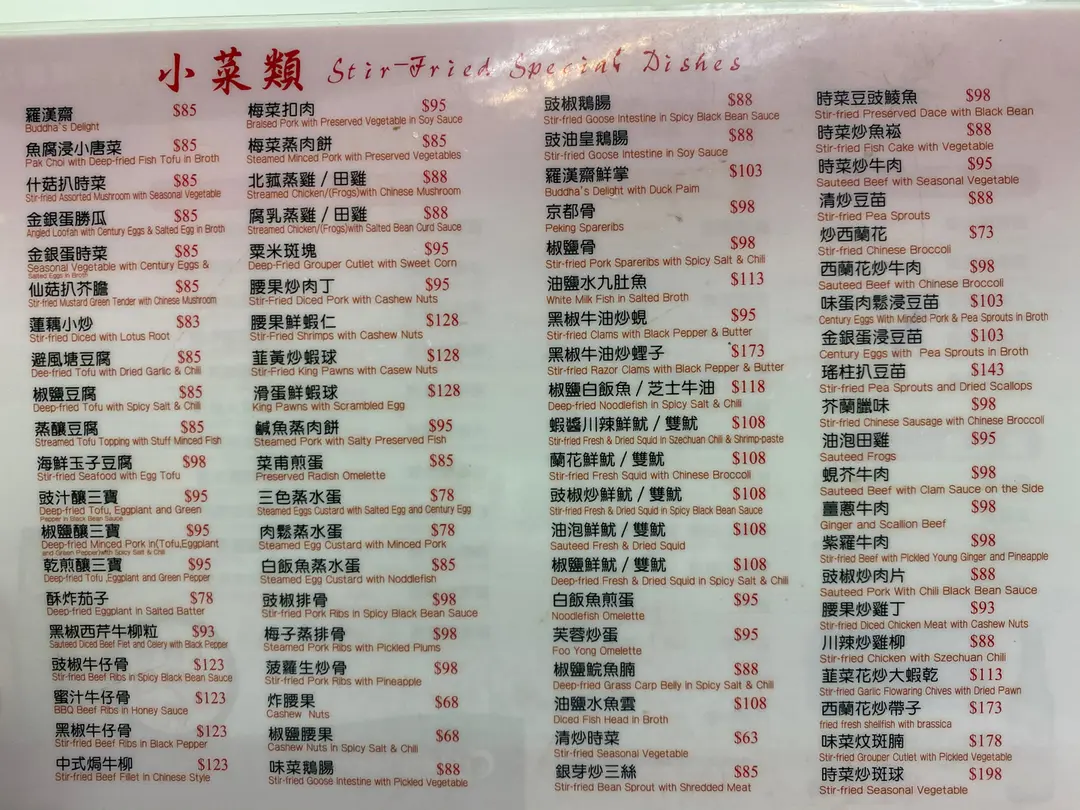 小菜類 Stir-Fried Special Dishes
羅漢齋 $85
Buddha's Delight
魚腐浸小唐菜 $85
Pak Choi with Deep-fried Fish Tofu in Broth
什菇扒時菜 $85
Stir-fried Assorted Mushroom with Seasonal Vegetable
金銀蛋勝瓜 $85
Angled Loofah with Century Eggs & Salted Egg in Broth
金銀蛋時菜 $85
Seasonal Vegetable with Century Eggs &
Salted Eggs in Broth
仙菇扒芥膽 $85
Stir-fried Mustard Green Tender with Chinese Mushroom
蓮藕小炒 $83
Stir-fried Diced with Lotus Root
避風塘豆腐 $85
Dee-fried Tofu with Dried Garlic & Chili
椒鹽豆腐 $85
Deep-fried Tofu with Spicy Salt & Chili
蒸釀豆腐 $85
Streamed Tofu Topping with Stuff Minced Fish
海鮮玉子豆腐 $98
Stir-fried Seafood with Egg Tofu
豉汁釀三寶 $95
Deep-fried Tofu, Eggplant and Green
Pepper in Black Bean Sauce
椒鹽釀三寶 $95
Deep-fried Minced Pork in(Tofu,Eggplant
and Green Pepper)with Spicy Salt & Chili
乾煎釀三寶 $95
Deep-fried Tofu ,Eggplant and Green Pepper
酥炸茄子 $78
Deep-fried Eggplant in Salted Batter
黑椒西芹牛柳粒 $93
Sauteed Diced Beef Filet and Celery with Black Pepper
豉椒牛仔骨 $123
Stir-fried Beef Ribs in Spicy Black Bean Sauce
蜜汁牛仔骨 $123
BBQ Beef Ribs in Honey Sauce
黑椒牛仔骨 $123
Stir-fried Beef Ribs in Black Pepper
中式焗牛柳 $123
Stir-fried Beef Fillet in Chinese Style
梅菜扣肉 $95
Braised Pork with Preserved Vegetable in Soy Sauce
梅菜蒸肉餅 $85
Steamed Minced Pork with Preserved Vegetables
北菰蒸雞 / 田雞 $88
Streamed Chicken/(Frogs)with Chinese Mushroom
腐乳蒸雞 / 田雞 $88
Streamed Chicken/(Frogs)with Salted Bean Curd Sauce
粟米斑塊 $95
Deep-Fried Grouper Cutlet with Sweet Corn
腰果炒肉丁 $95
Stir-Fried Diced Pork with Cashew Nuts
腰果鮮蝦仁 $128
Stir-Fried Shrimps with Cashew Nuts
韮黃炒蝦球 $128
Stir-Fried King Pawns with Casew Nuts
滑蛋鮮蝦球 $128
King Pawns with Scrambled Egg
鹹魚蒸肉餅 $95
Steamed Pork with Salty Preserved Fish
菜甫煎蛋 $85
Preserved Radish Omelette
三色蒸水蛋 $78
Steamed Eggs Custard with Salted Egg and Century Egg
肉鬆蒸水蛋 $78
Steamed Egg Custard with Minced Pork
白飯魚蒸水蛋 $85
Steamed Egg Custard with Noddlefish
豉椒排骨 $98
Stir-fried Pork Ribs in Spicy Black Bean Sauce
梅子蒸排骨 $98
Steamed Pork Ribs with Pickled Plums
菠蘿生炒骨 $98
Stir-fried Pork Ribs with Pineapple
炸腰果 $68
Cashew Nuts
椒鹽腰果 $68
Cashew Nuts in Spicy Salt & Chili
味菜鵝腸 $88
Stir-fried Goose Intestine with Pickled Vegetable
豉椒鵝腸 $88
Stir-fried Goose Intestine in Spicy Black Bean Sauce
豉油皇鵝腸 $88
Stir-fried Goose Intestine in Soy Sauce
羅漢齋鮮掌 $103
Buddha's Delight with Duck Paim
京都骨 $98
Peking Spareribs
椒鹽骨 $98
Stir-fried Pork Spareribs with Spicy Salt & Chili
油鹽水九肚魚 $113
White Milk Fish in Salted Broth
黑椒牛油炒蜆 $95
Stir-fried Clams with Black Pepper & Butter
黑椒牛油炒蟶子 $173
Stir-fried Razor Clams with Black Pepper & Butter
椒鹽白飯魚 / 芝士牛油 $118
Deep-fried Noodlefish in Spicy Salt & Chili
蝦醬川辣鮮魷 / 雙魷 $108
Stir-fried Fresh & Dried Squid in Szechuan Chili & Shrimp-paste
蘭花鮮魷 / 雙魷 $108
Stir-fried Fresh Squid with Chinese Broccoli
豉椒炒鮮魷 / 雙魷 $108
Stir-fried Fresh & Dried Squid in Spicy Black Bean Sauce
油泡鮮魷 / 雙魷 $108
Sauteed Fresh & Dried Squid
椒鹽鮮魷 / 雙魷 $108
Deep-fried Fresh & Dried Squid in Spicy Salt & Chili
白飯魚煎蛋 $95
Noodlefish Omelette
芙蓉炒蛋 $95
Foo Yong Omelette
椒鹽鯇魚腩 $88
Deep-fried Grass Carp Belly in Spicy Salt & Chili
油鹽水魚雲 $108
Diced Fish Head in Broth
清炒時菜 $63
Stir-fried Seasonal Vegetable
銀芽炒三絲 $85
Stir-fried Bean Sprout with Shredded Meat
時菜豆豉鯪魚 $98
Stir-fried Preserved Dace with Black Bean
時菜炒魚崧 $88
Stir-fried Fish Cake with Vegetable
時菜炒牛肉 $95
Sauteed Beef with Seasonal Vegetable
清炒豆苗 $88
Stir-fried Pea Sprouts
炒西蘭花 $73
Stir-fried Chinese Broccoli
西蘭花炒牛肉 $98
Sauteed Beef with Chinese Broccoli
味蛋肉鬆浸豆苗 $103
Century Eggs With Minced Pork & Pea Sprouts in Broth
金銀蛋浸豆苗 $103
Century Eggs with Pea Sprouts in Broth
瑤柱扒豆苗 $143
Stir-fried Pea Sprouts and Dried Scallops
芥蘭臘味 $98
Stir-fried Chinese Sausage with Chinese Broccoli
油泡田雞 $95
Sauteed Frogs
蜆芥牛肉 $98
Sauteed Beef with Clam Sauce on the Side
薑蔥牛肉 $98
Ginger and Scallion Beef
紫羅牛肉 $98
Stir-fried Beef with Pickled Young Ginger and Pineapple
豉椒炒肉片 $88
Sauteed Pork With Chili Black Bean Sauce
腰果炒雞丁 $93
Stir-fried Diced Chicken Meat with Cashew Nuts
川辣炒雞柳 $88
Stir-fried Chicken with Szechuan Chili
韮菜花炒大蝦乾 $113
Stir-fried Garlic Flowaring Chives with Dried Pawn
西蘭花炒帶子 $173
fried fresh shellfish with brassica
味菜炆斑腩 $178
Stir-fried Grouper Cutlet with Pickled Vegetable
時菜炒斑球 $198
Stir-fried Seasonal Vegetable